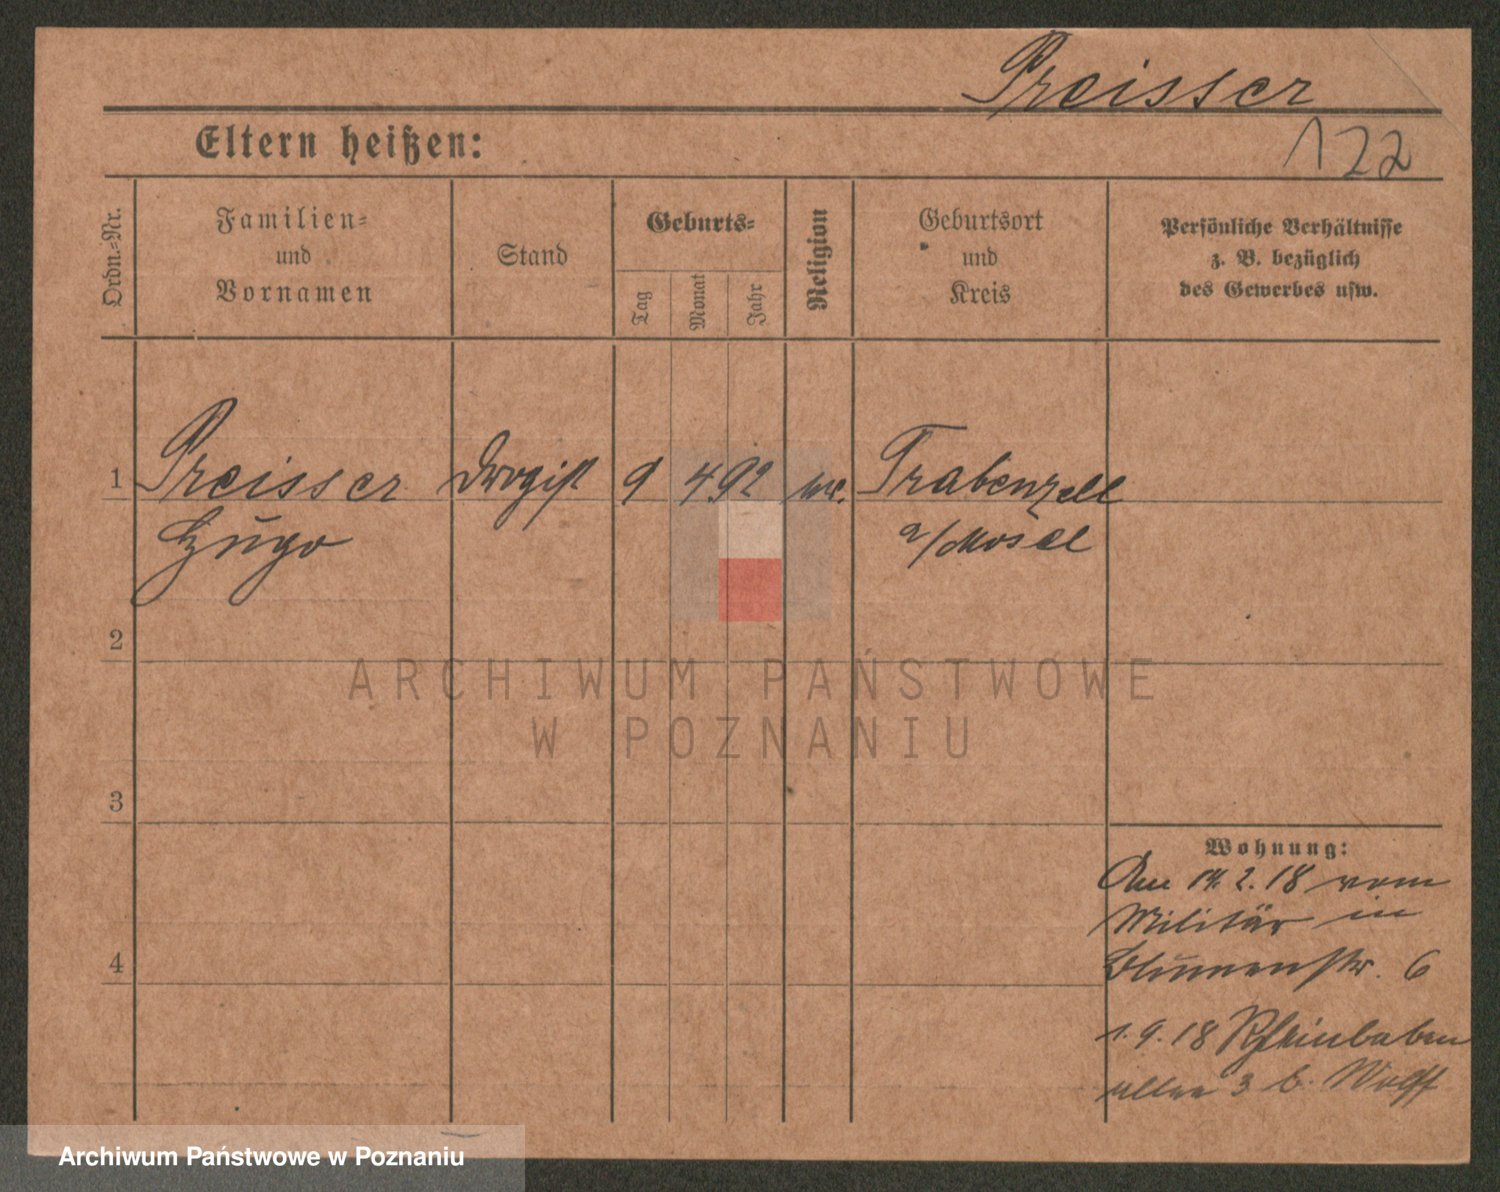 Preisser
122
Eltern heißen:
Ordn.-Nr.
Familien-
und
Vornamen
Stand
Geburts-
Tag
Monat
Jahr
Religion
Geburtsort
und
Kreis
Persönliche Verhältnisse
z. B. bezüglich
des Gewerbes usw.
1 Preisser Drogist 9 4 92 Trabenzell
Hugo a/Mosel
2
3
4
Wohnung:
Am 14. 2. 18 vom
Militär in
Blumenstr. 6
1. 9. 18 Rheinbaben
allee 3 b. Wolff
ARCHIWUM PAŃSTWOWE
W POZNANIU
Archiwum Państwowe w Poznaniu